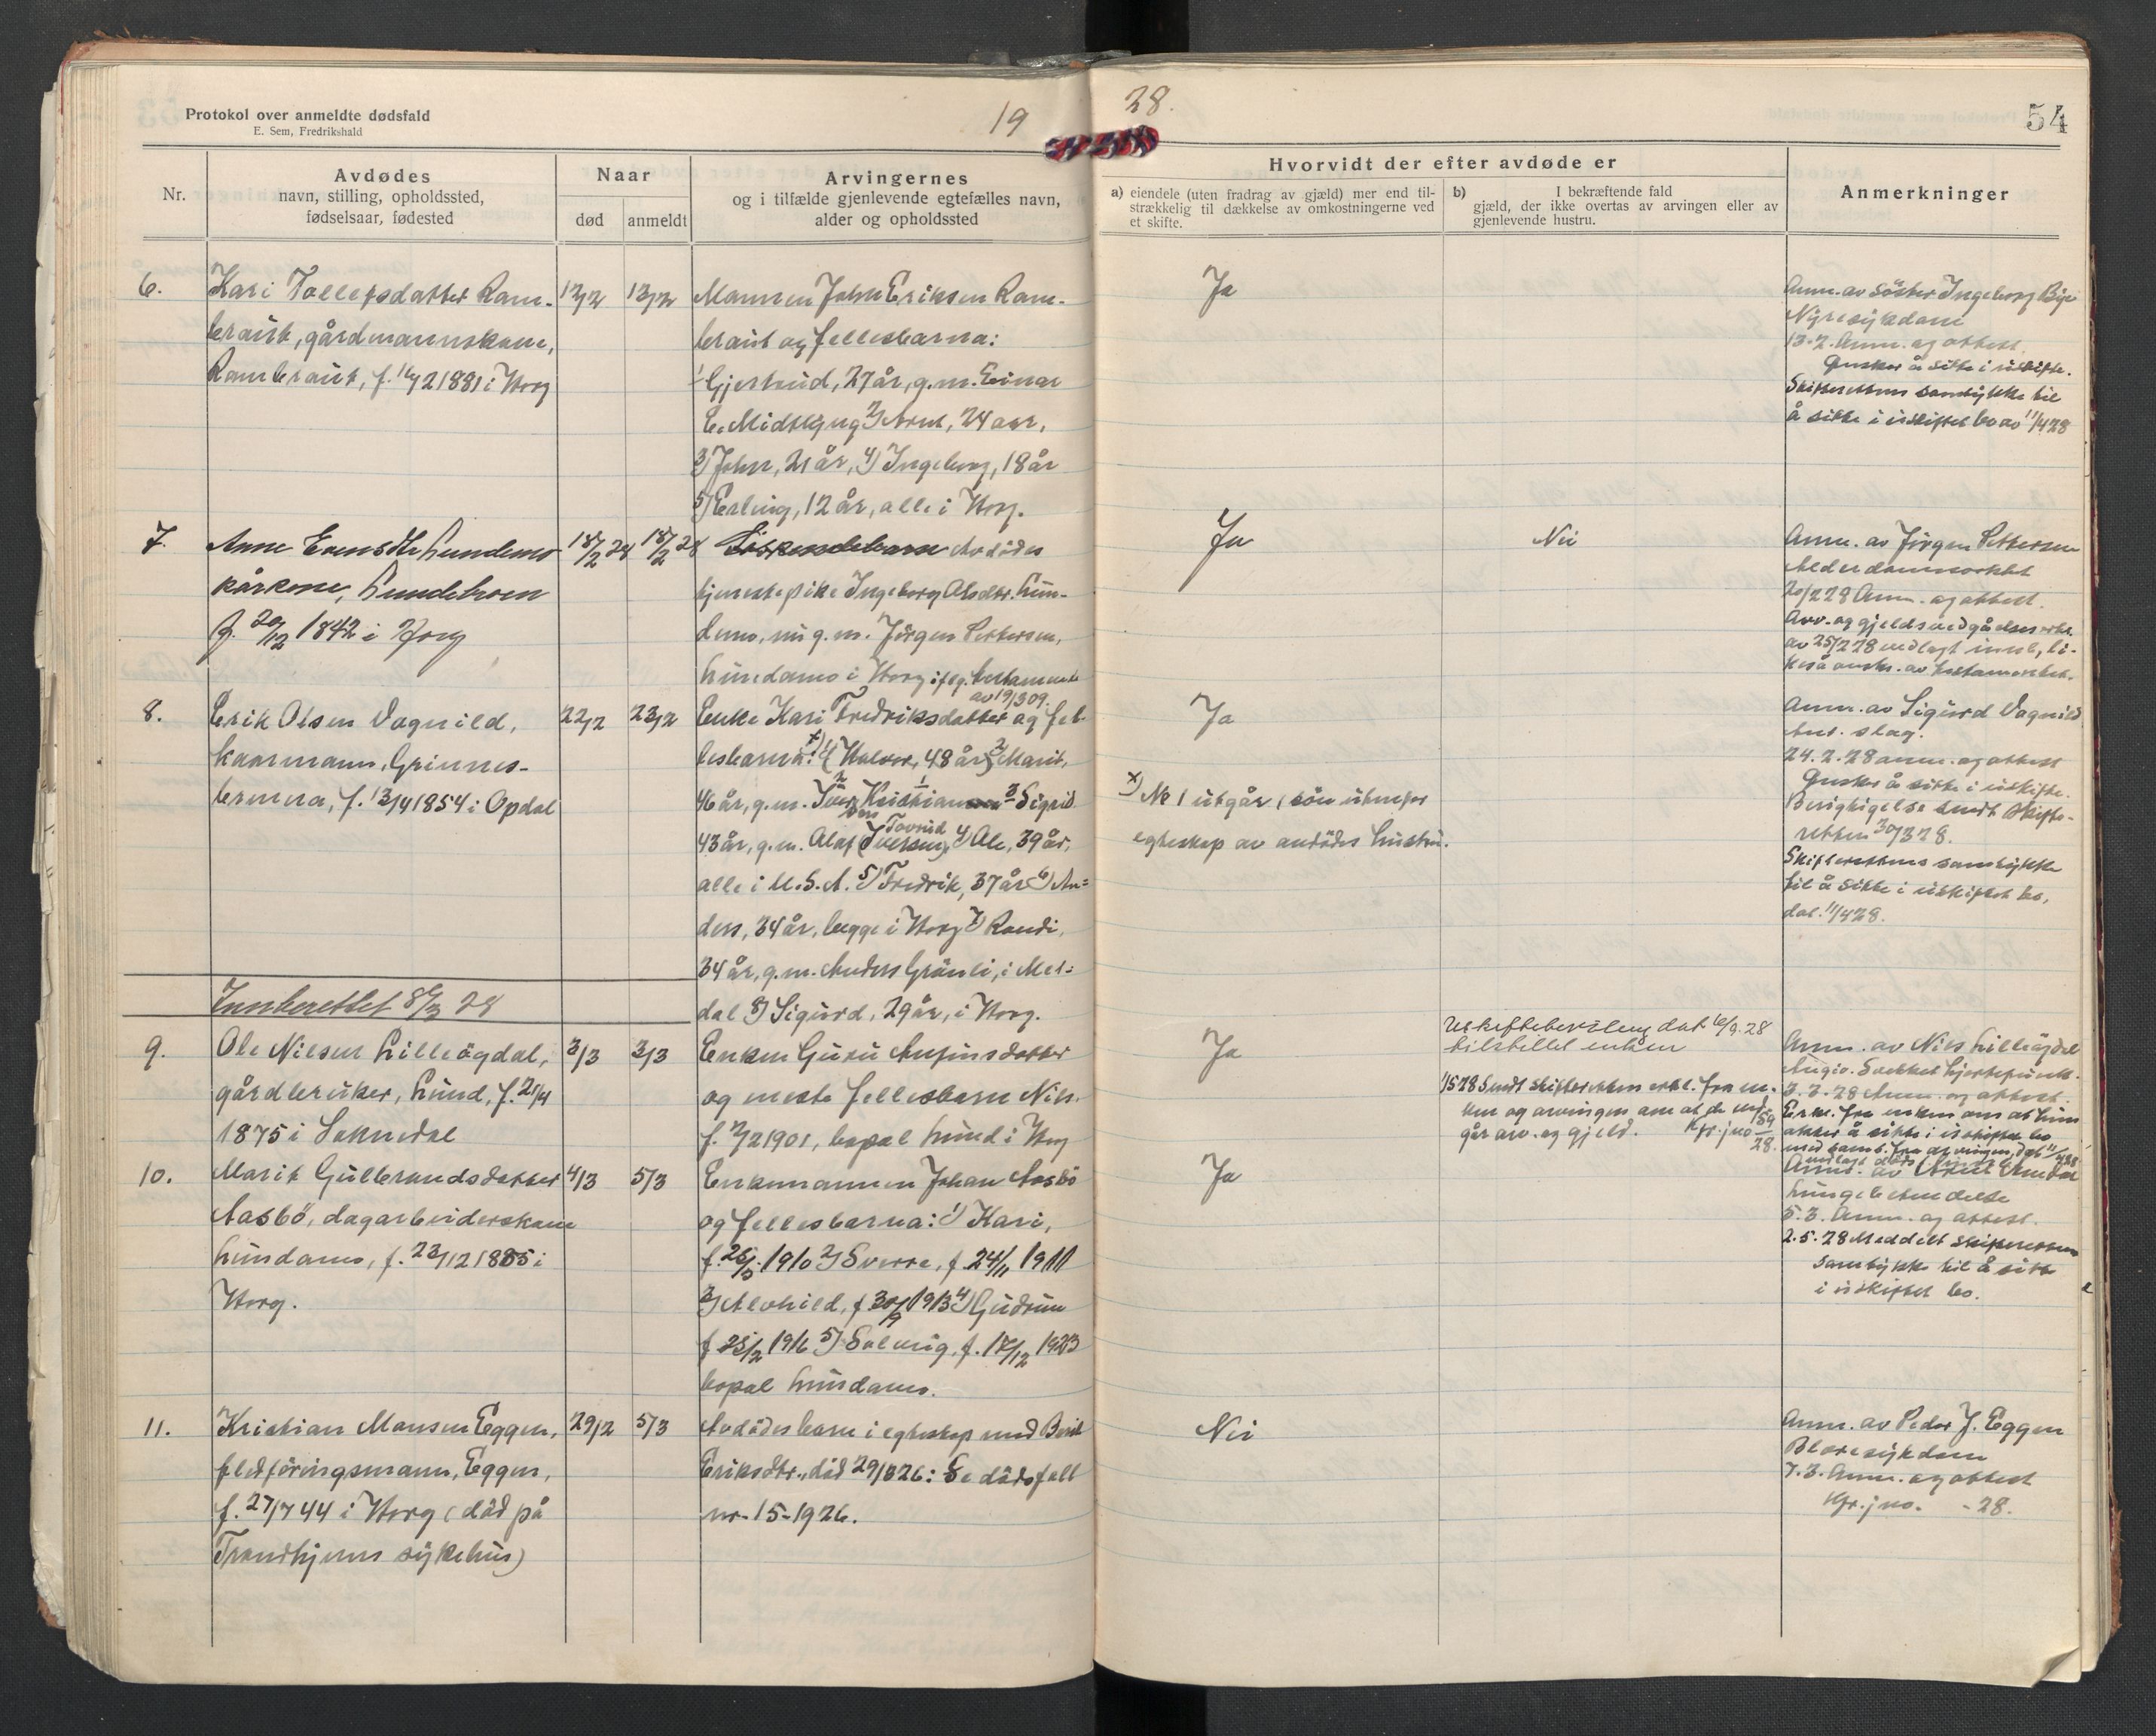 Protokol over anmeldte dødsfald
E. Sem, Fredrikshald
19
28.
54
Nr.
Avdødes
navn, stilling, opholdssted,
fødselsaar, fødested
Naar
død
anmeldt
Arvingernes
og i tilfælde gjenlevende egtefælles navn,
alder og opholdssted
Hvorvidt der efter avdøde er
a) eiendele (uten fradrag av gjæld) mer end til-
strækkelig til dækkelse av omkostningerne ved
et skifte.
b) I bekræftende fald
gjæld, der ikke overtas av arvingen eller av
gjenlevende hustru.
Anmerkninger
6.
Kari Tollefsdatter Ram-
braut, gårdmannskone,
Rambraut, f. 1881 i Horg
12/2
13/2
Mannen John Eriksen Ram-
braut og fellesbarna:
1) Gjertrud, 27 år, g.m. Einar
E. Midtlyng 2) Arnt, 24 aar,
3) John, 21 år, 4) Ingeborg, 18 år
5) Erling, 12 år, alle i Horg.
Ja
Anm. av søster Ingeborg Bye
Nyresykdom
13.2. Anm. og attest
Ønsker å sitte i uskifte.
Skifterettens samtykke til
å sitte i uskiftet bo av 11/4 28
7.
Anne Evensdtr Lundemo
kårkone, Lundemoen
f. 20/12 1842 i Horg
18/2 28
18/2 28
Søskendebarn Avdødes
tjenestepike Ingeborg Olsdtr. Lun-
demo, nu g.m. Jörgen Pettersen,
Lundamo i Horg iføg. testamente
av 19/3 09.
Ja
Nei
Anm. av Jörgen Pettersen
Alderdomssvakhet
20/2 28 Anm. og attest.
Arv- og gjeldsvedgåelseserkl.
av 25/2 28 vedlagt innb., li-
keså avskr. av testamentet.
8.
Erik Olsen Vognild,
kaarmann, Grinnes-
brenna, f. 13/4 1854 i Opdal
22/2
23/2
Enke Kari Fredriksdatter og fel-
lesbarna: x) 1) Halvor, 48 år 2) Marit,
46 år, g.m. Iver Kristiansen 3) Sigrid
43 år, g.m. Olaf (Iversen), 4) Ole, 39 år,
alle i U.S.A. 5) Fredrik, 37 år 6) An-
ders, 34 år, begge i Horg 7) Randi,
34 år, g.m. Anders Grönli, i Mel-
dal 8) Sigurd, 29 år, i Horg.
Ja
x) No 1 utgår (søn utenfor
egteskap av avdødes hustru.
Anm. av Sigurd Vognild
Ant. slag.
24.2.28 anm. og attest
Ønsker å sitte i uskifte.
Berigtigelse sendt skifte-
retten 30/3 28.
Skifterettens samtykke
til å sitte i uskiftet bo,
dat. 11/4 28.
Innberettet 8/3 28
9.
Ole Nilsen Lilleögdal,
gårdbruker, Lund, f. 21/4
1875 i Soknedal
3/3
3/3
Enken Guru Anfinsdatter
og eneste fellesbarn Nils
f. 1901, bopæl Lund i Horg
Ja
Uskiftebevilling dat 6/9.28
tilstillet enken
1/5 28 Sendt skifteretten erkl. fra en-
ken og arvingen om at de ved-
går arv og gjeld. Kfr. jno 159/28.
Anm. av Nils Lilleögdal
Angiv. Svekket hjertefunk.
3.3.28 Anm. og attest.
Erkl. fra enken om at hun
akter å sitte i uskiftet bo
med samt. fra arvingen, dat 11/4 28
10.
Marit Gulbrandsdatter
Aasbö, dagarbeiderskone
Lundamo, f. 23/12 1885 i
Horg.
4/3
5/3
Enkemannen Johan Aasbö
og fellesbarna: 1) Kari,
f. 26/5 1910 2) Sverre, f. 24/11 1911
3) Alvhild, f. 30/9 1913 4) Gudrun
f 25/2 1916 5) Solveig, f. 17/12 1923
bopæl Lundamo.
Ja
Lungebetendelse
5.3. Anm. og attest.
2.5.28 Meddelt skifterettens
samtykke til å sitte
i uskiftet bo.
11.
Kristian Monsen Eggen,
fledföringsmann, Eggen,
f. 27/7 44 i Horg (død på
Trondhjems sykehus)
29/2
5/3
Avdødes barn i egteskap med Berit
Eriksdtr., död 29/8 26: Se dødsfall
nr. 15-1926.
Nei
Anm. av Peder J. Eggen
Blæresykdom
7.3. Anm. og attest
Kfr. jno. - 28.